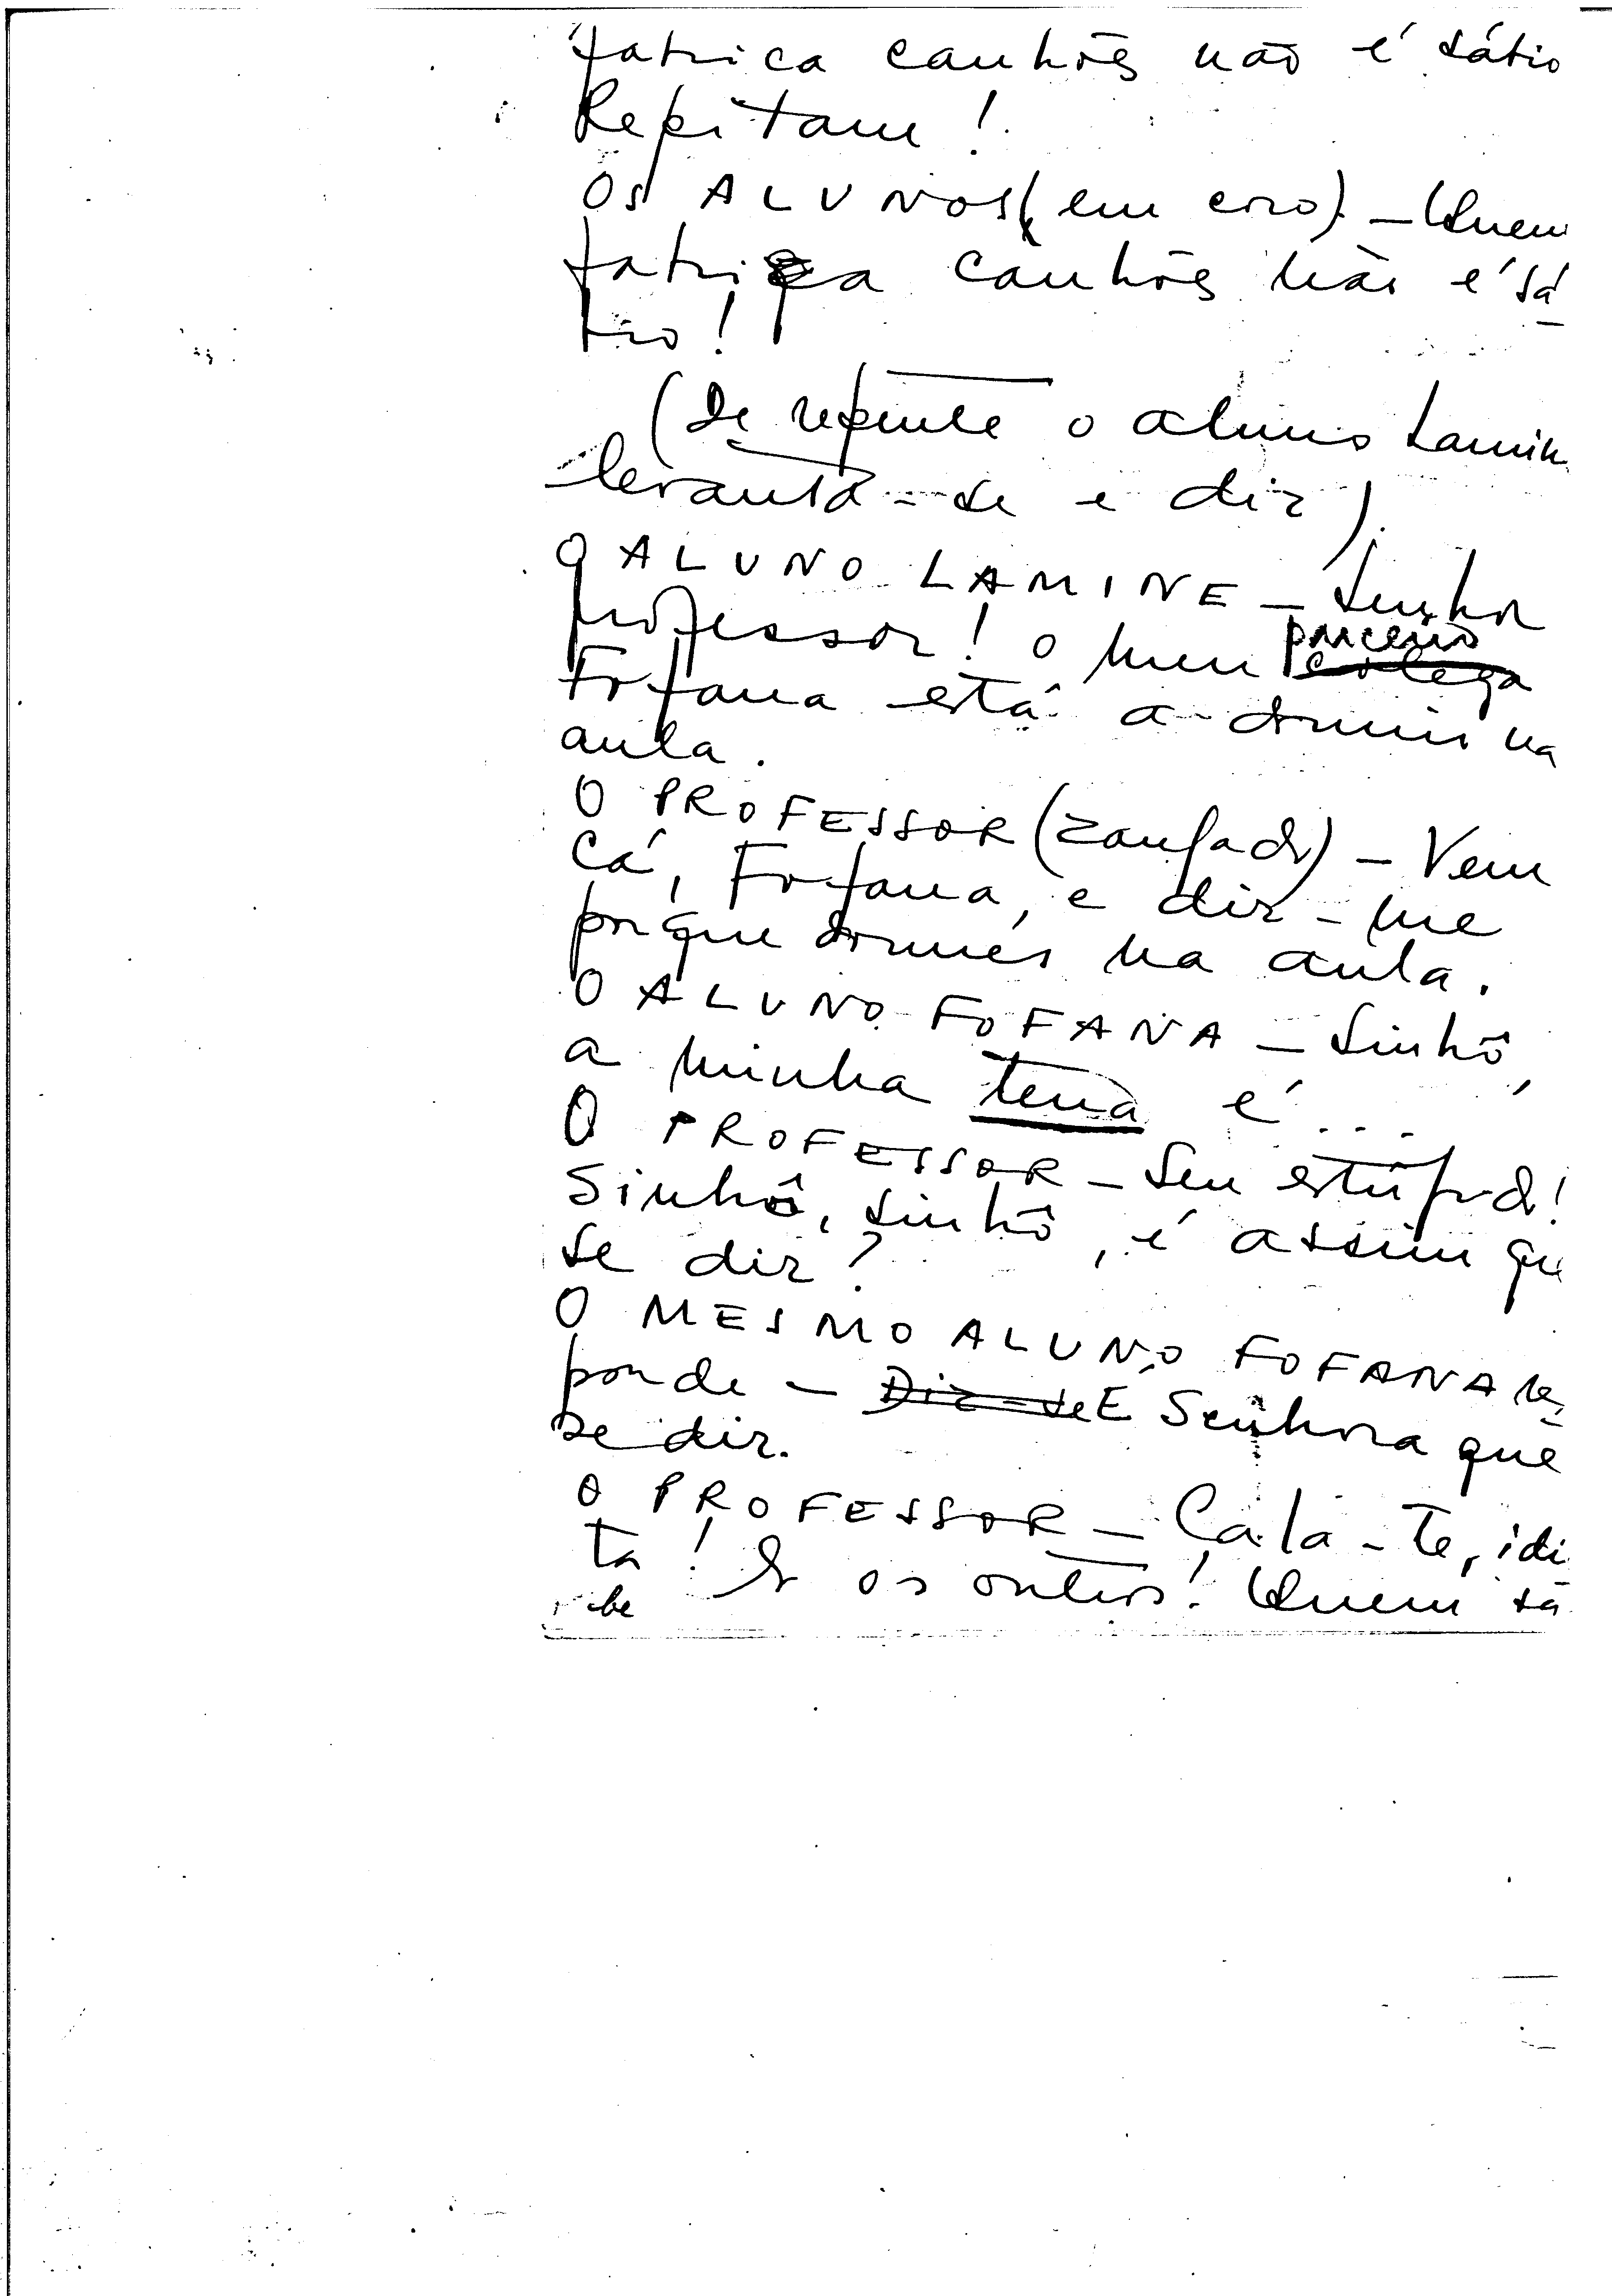 fabrica canhões não é sábio
Repitam!
Os ALUNOS (em coro) - Quem
fabrica canhões não é sá-
bio!
(De repente o aluno Lamin
levanta-se e diz)
O ALUNO LAMINE - Senhor
professor! O meu parceiro colega
Fofana está a dormir na
aula.
O PROFESSOR (zangado) - Vem
cá, Fofana, e diz-me
porque dormes na aula.
O ALUNO FOFANA - Sinhô,
a minha terra é ...
O PROFESSOR - Seu estúpido!
Sinhô, sinhô, é assim que
se diz?
O MESMO ALUNO FOFANA res-
ponde - Diz-se É Senhora que
se diz.
O PROFESSOR - Cala-te, idi
ta! E os outros! Quem sa
be